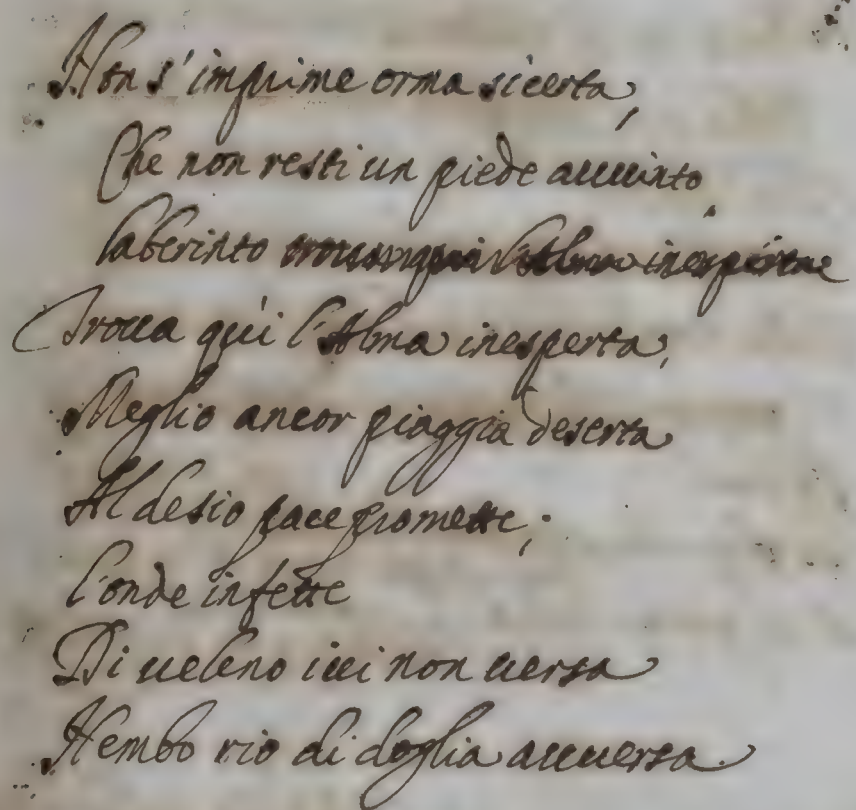 Non s'imprime orma sicerta,
Che non resti un piede auuinto,
laberinto trouan qui l'Alma inesperta
Troua qui l'Alma inesperta,
Meglio ancor piaggia deserta
Al desio pace promette;
l'onde infette
Di ueleno iui non uersa
Nembo rio di doglia auuersa.